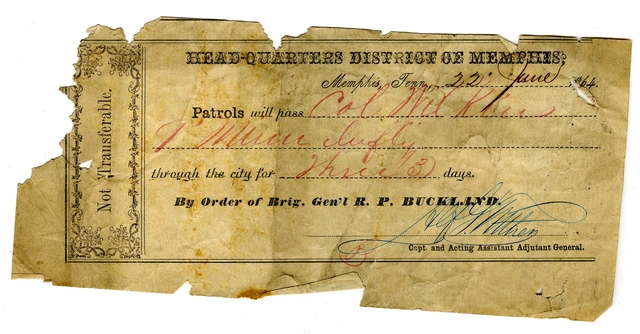 Not Transferable.
HEAD-QUARTERS DISTRICT OF MEMPHIS,
Memphis, Tenn., 22 June 1864.
Patrols will pass Col Wilkins
through the city for three (3) days.
By Order of Brig. Gen'l R. P. BUCKLAND.
Capt. and Acting Assistant Adjutant General.